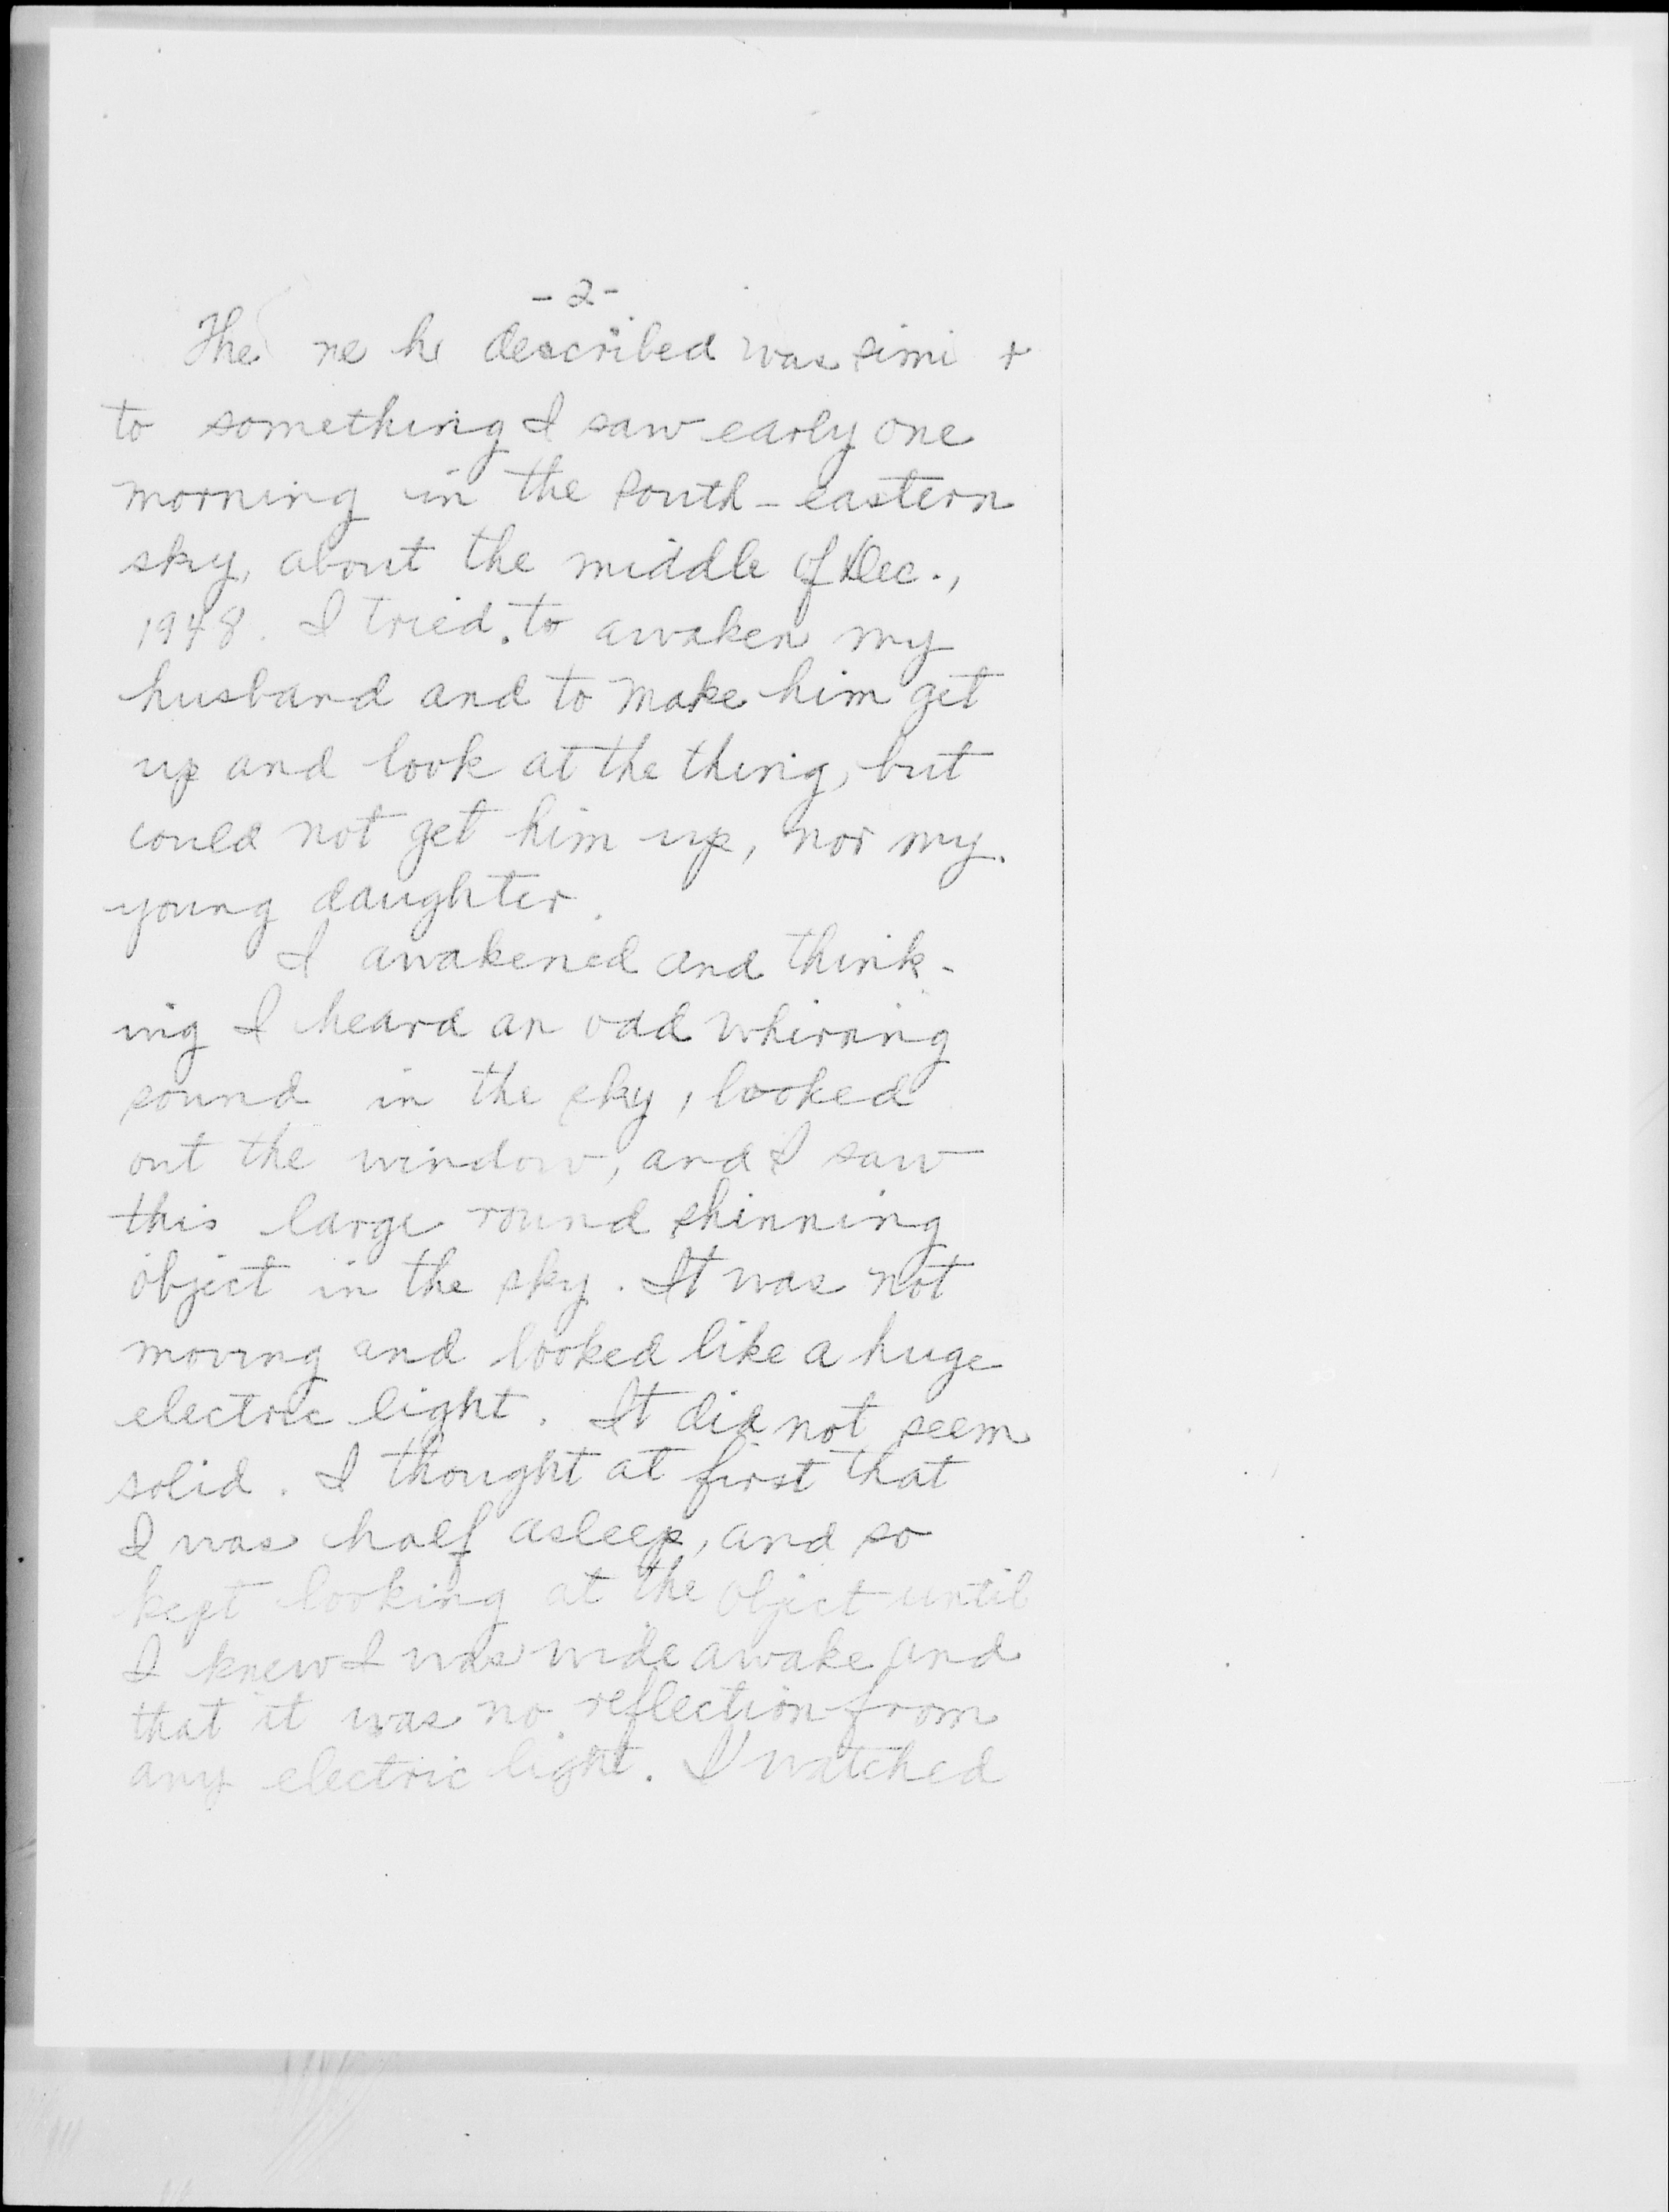 -2-
The ne he described was simi r
to something I saw early one
morning in the south-eastern
sky, about the middle of Dec.,
1948. I tried to awaken my
husband and to make him get
up and look at the thing, but
could not get him up, nor my
young daughter.
I awakened and think-
ing I heard an odd whirring
sound in the sky, looked
out the window, and I saw
this large round shinning
object in the sky. It was not
moving and looked like a huge
electric light. It did not seem
solid. I thought at first that
I was half asleep, and so
kept looking at the object until
I knew I was wide awake and
that it was no reflection from
any electric light. I watched